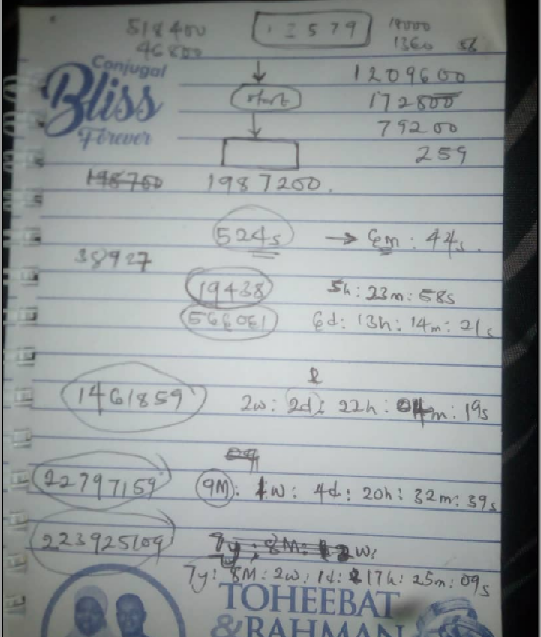 518400
46800
12579
18000
1360 56
Conjugal
Bliss
Forever
start
1209600
172800
79200
259
198700 1987200.
524s → 8m: 44s.
38927
19438 5h: 23m: 58s
566061 6d: 13h: 14m: 21s
1461859 2w: 2d: 22h: 04m: 19s
22797159 9M: 1w: 4d: 20h: 32m: 39s
223925109 7y: 8M: 2w:
7y: 8M: 2w: 1d: 17h: 25m: 09s
TOHEEBAT
&RAHMAN